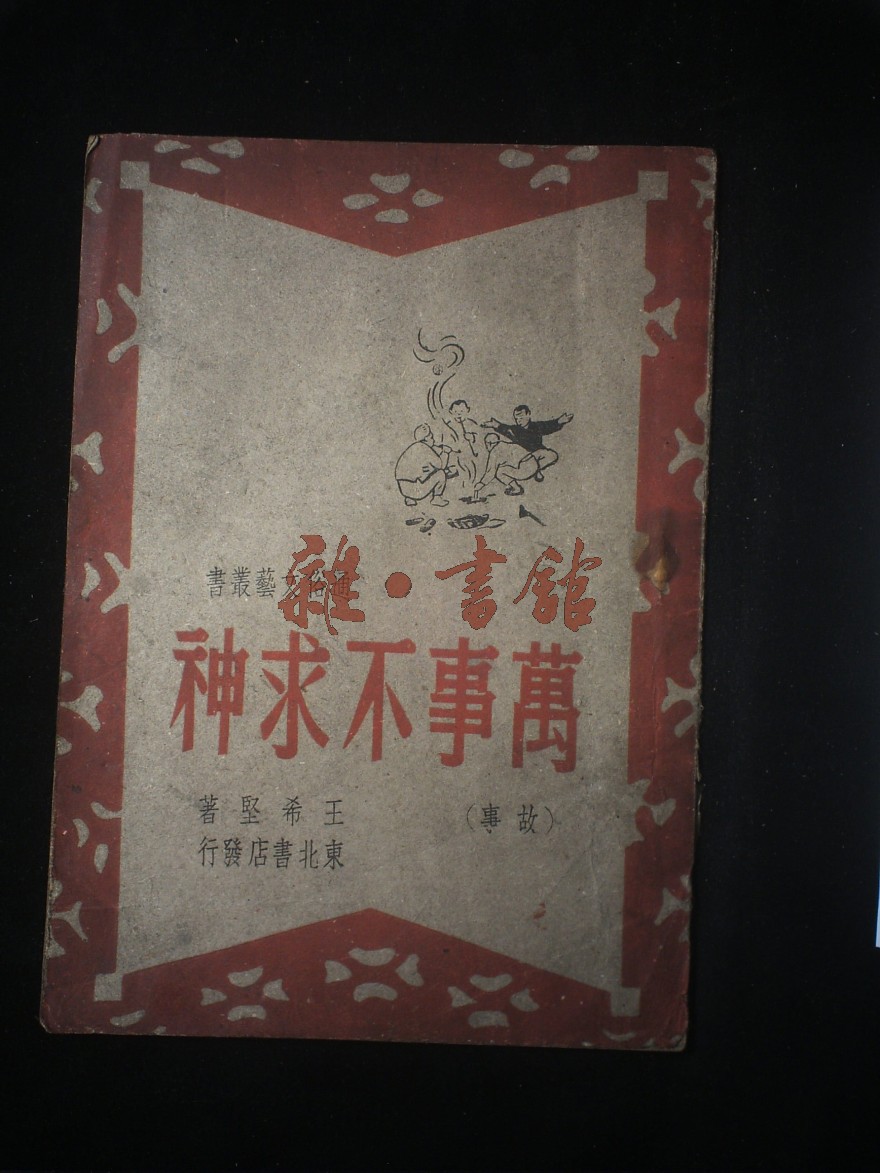 通俗文藝叢書
雜·書館
萬事不求神
(故事)
王希堅著
東北書店發行